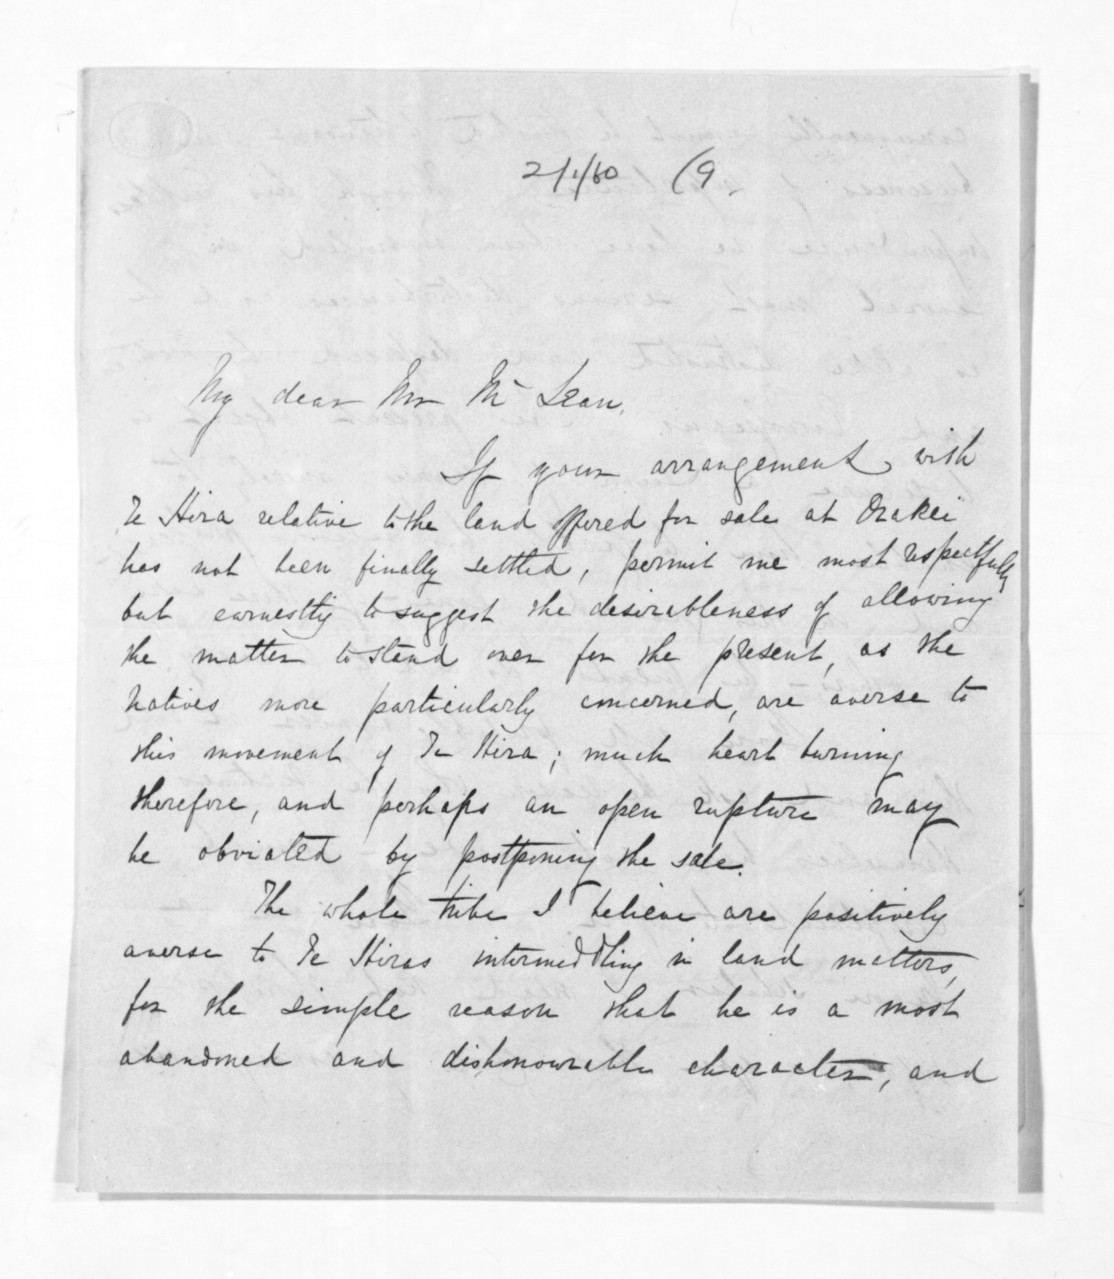 2/1/60 (9
My dear Mr McLean,
If your arrangement with
Te Hira relative to the land offered for sale at Orakei
has not been finally settled, permit me most respectfully
but earnestly to suggest the desirableness of allowing
the matter to stand over for the present, as the
natives more particularly concerned, are averse to
this movement of Te Hira; much heart burning
therefore, and perhaps an open rupture may
be obviated by postponing the sale.
The whole tribe I believe are positively
averse to Te Hiras intermeddling in land matters,
for the simple reason that he is a most
abandoned and dishonourable character, and